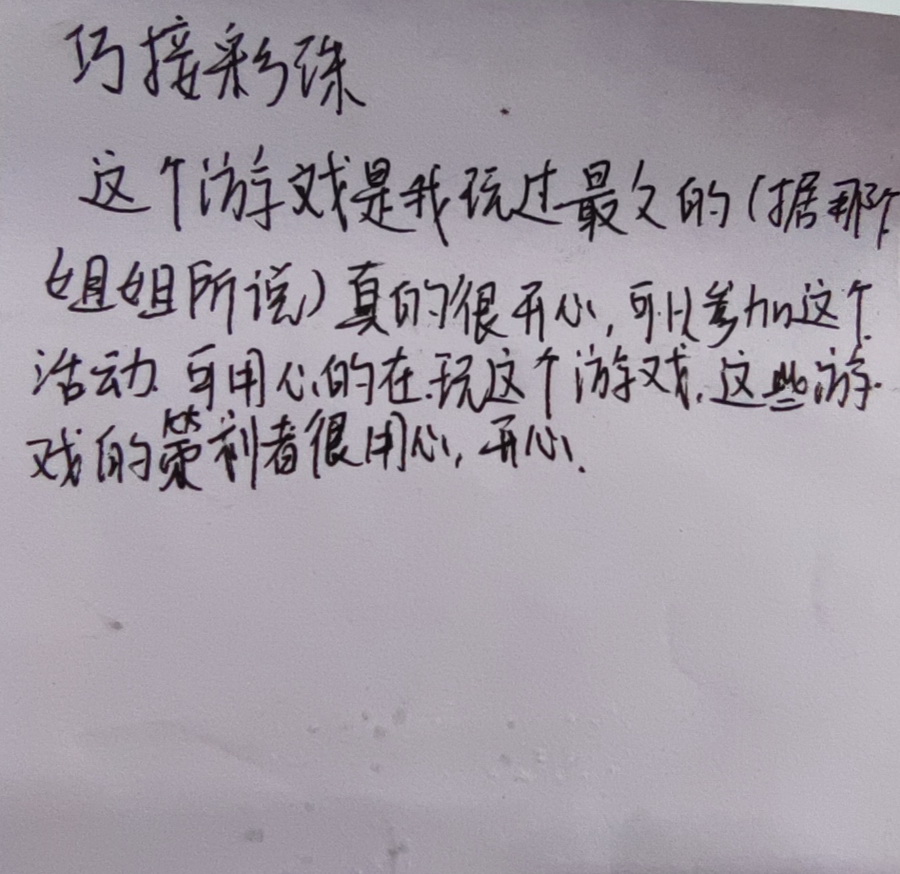 巧接彩珠
这个游戏是我玩过最久的(据那个
姐姐所说)真的很开心,可以参加这个
活动.可用心的在玩这个游戏.这些游
戏的策利者很用心,开心.